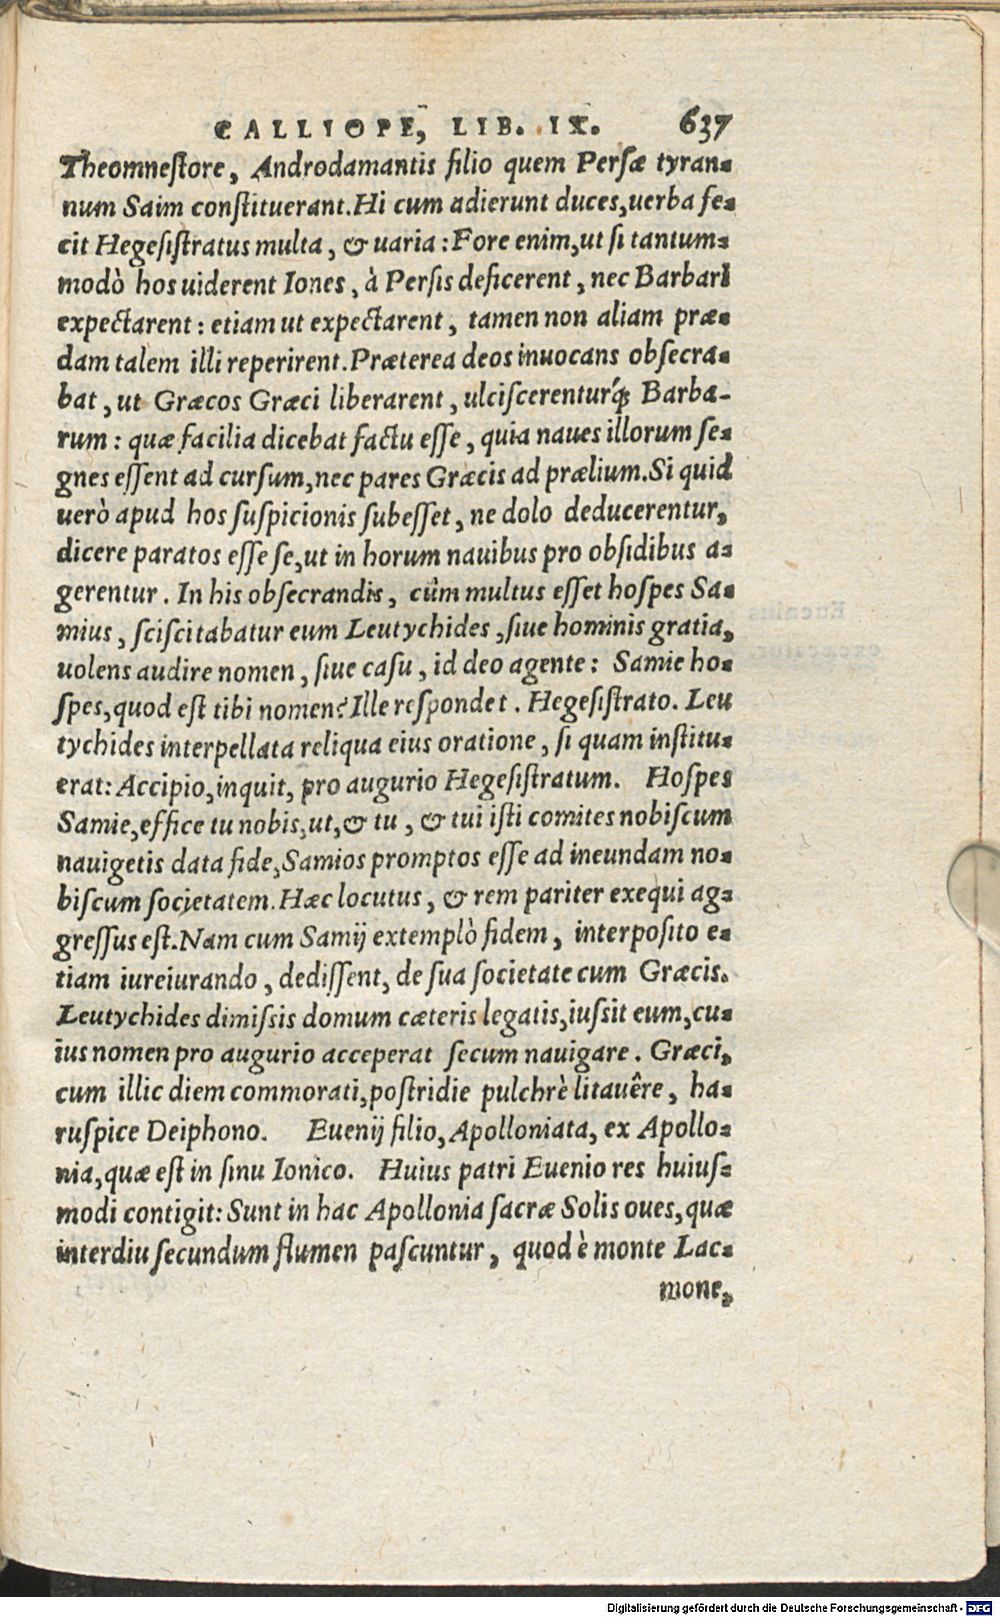 CALLIOPE, LIB. IX. 637
Theomneſtore, Androdamantis filio quem Perſæ tyran-
num Saim conſtituerant. Hi cum adierunt duces, uerba fe-
cit Hegeſiſtratus multa, & uaria: Fore enim, ut ſi tantum-
modò hos uiderent Iones, à Perſis deficerent, nec Barbari
expectarent: etiam ut expectarent, tamen non aliam præ-
dam talem illi reperirent. Præterea deos inuocans obſecra-
bat, ut Græcos Græci liberarent, ulciſcerenturq́; Barba-
rum: quæ facilia dicebat factu eſſe, quia naues illorum ſe-
gnes eſſent ad curſum, nec pares Græcis ad prælium. Si quid
uerò apud hos ſuſpicionis ſubeſſet, ne dolo deducerentur,
dicere paratos eſſe ſe, ut in horum nauibus pro obſidibus a-
gerentur. In his obſecrandis, cùm multus eſſet hoſpes Sa-
mius, ſciſcitabatur eum Leutychides, ſiue hominis gratia,
uolens audire nomen, ſiue caſu, id deo agente: Samie ho-
ſpes, quod eſt tibi nomen? Ille reſpondet. Hegeſiſtrato. Leu
tychides interpellata reliqua eius oratione, ſi quam inſtitu-
erat: Accipio, inquit, pro augurio Hegeſiſtratum. Hoſpes
Samie, effice tu nobis, ut, & tu, & tui iſti comites nobiſcum
nauigetis data fide, Samios promptos eſſe ad ineundam no-
biſcum ſocietatem. Hæc locutus, & rem pariter exequi ag-
greſſus eſt. Nam cum Samij extemplò fidem, interpoſito e-
tiam iureiurando, dediſſent, de ſua ſocietate cum Græcis.
Leutychides dimiſsis domum cæteris legatis, iuſsit eum, cu-
ius nomen pro augurio acceperat ſecum nauigare. Græci,
cum illic diem commorati, poſtridie pulchrè litauêre, ha-
ruſpice Deiphono. Euenij filio, Apolloniata, ex Apollo-
nia, quæ eſt in ſinu Ionico. Huius patri Euenio res huiuſ-
modi contigit: Sunt in hac Apollonia ſacræ Solis oues, quæ
interdiu ſecundum flumen paſcuntur, quod è monte Lac-
mone,
Digitalisierung gefördert durch die Deutsche Forschungsgemeinschaft - DFG